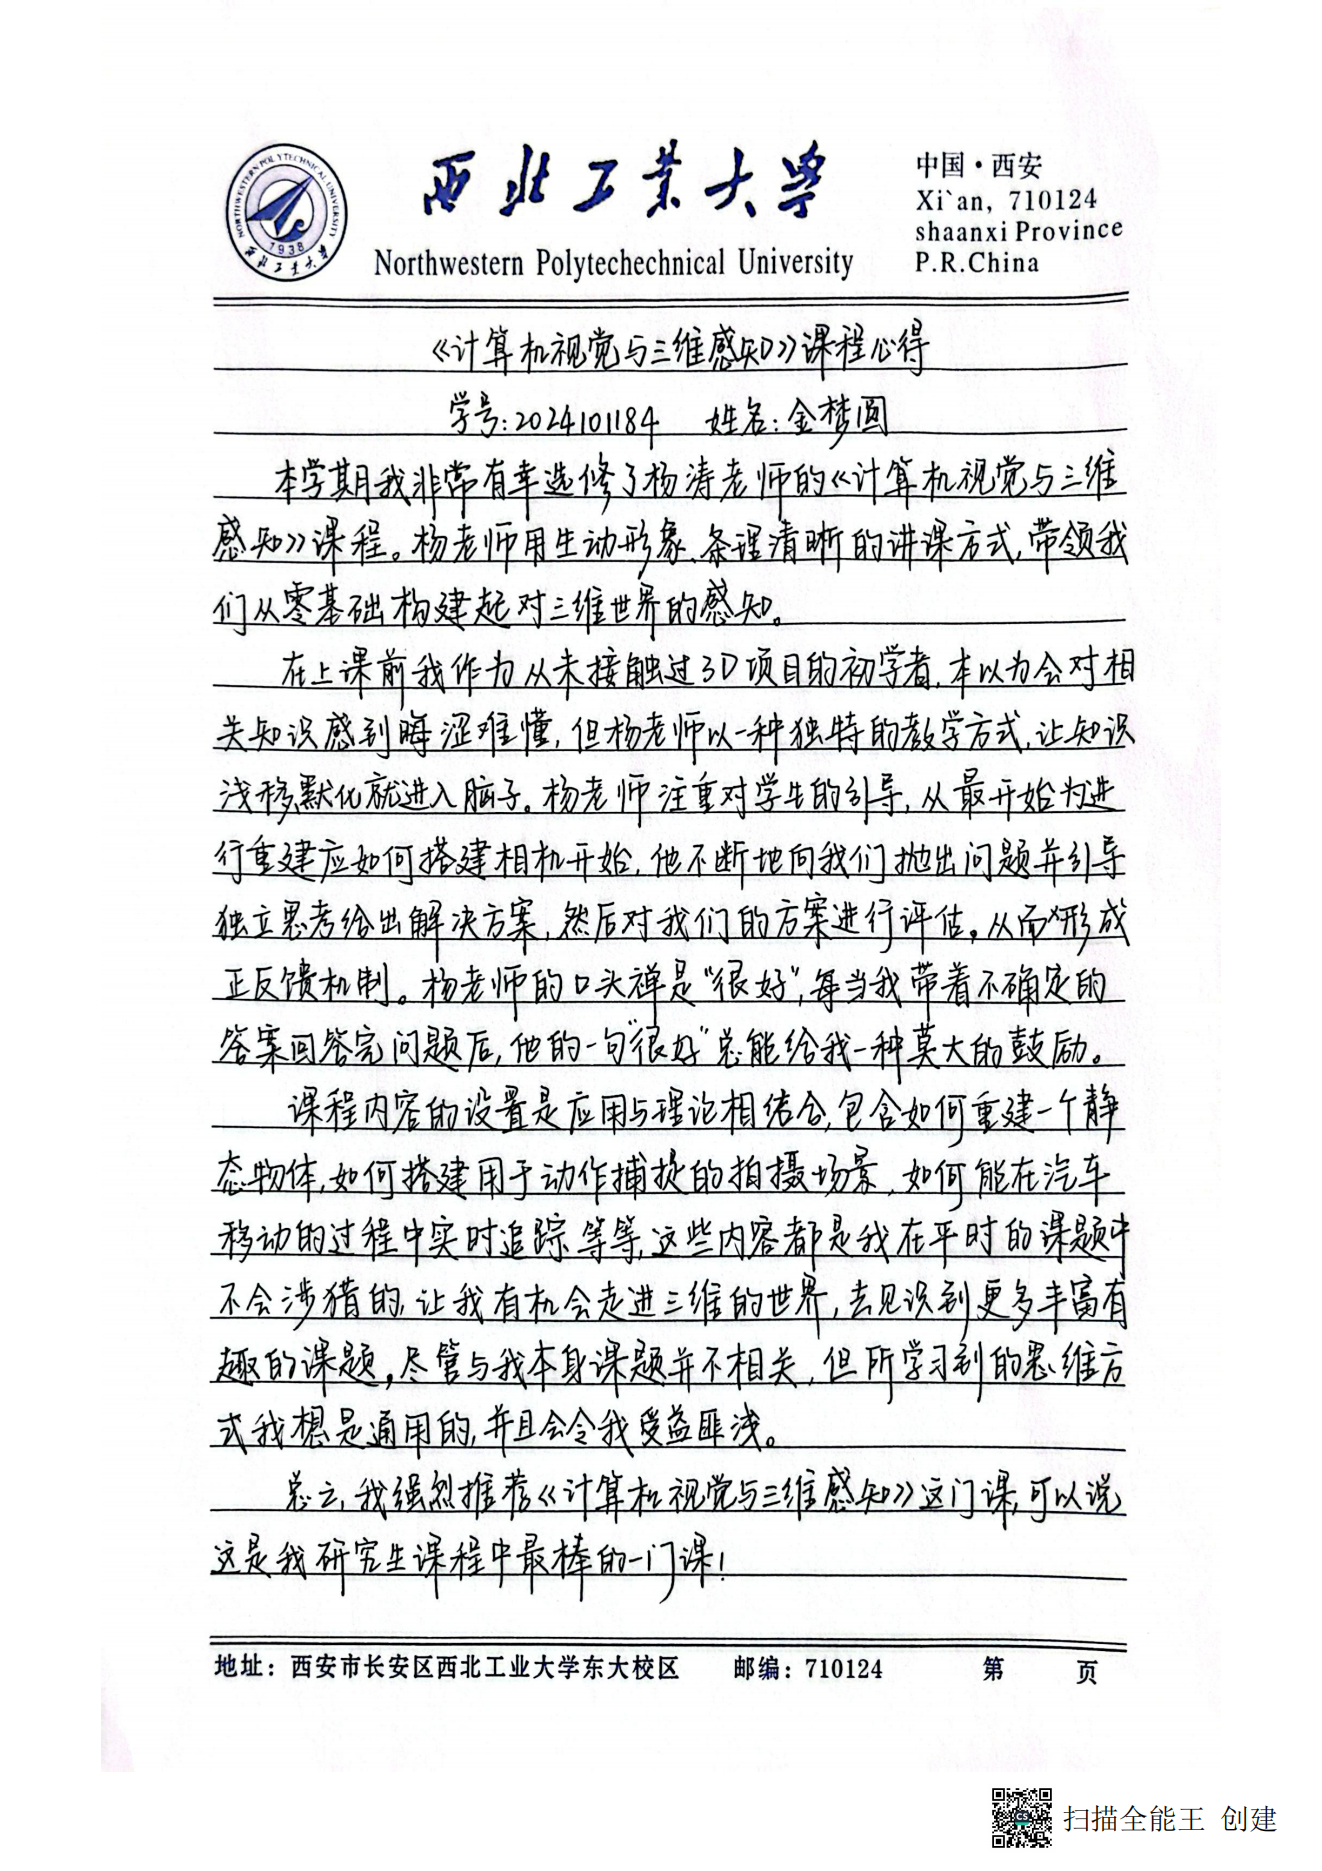 西北工业大学
Northwestern Polytechechnical University
中国·西安
Xi`an, 710124
shaanxi Province
P.R.China
NORTHWESTERN POLYTECHNICAL UNIVERSITY
1938
西北工业大学
《计算机视觉与三维感知》课程心得
学号:2024101184 姓名:金梦圆
本学期我非常有幸选修了杨涛老师的《计算机视觉与三维
感知》课程。杨老师用生动形象、条理清晰的讲课方式,带领我
们从零基础构建起对三维世界的感知。
在上课前我作为从未接触过3D项目的初学者,本以为会对相
关知识感到晦涩难懂,但杨老师以一种独特的教学方式,让知识
浅移默化就进入脑子。杨老师注重对学生的引导,从最开始为进
行重建应如何搭建相机开始,他不断地向我们抛出问题并引导
独立思考给出解决方案,然后对我们的方案进行评估。从而形成
正反馈机制。杨老师的口头禅是“很好”,每当我带着不确定的
答案回答完问题后,他的一句“很好”总能给我一种莫大的鼓励。
课程内容的设置是应用与理论相结合,包含如何重建一个静
态物体,如何搭建用于动作捕捉的拍摄场景,如何能在汽车
移动的过程中实时追踪等等,这些内容都是我在平时的课题中
不会涉猎的,让我有机会走进三维的世界,去见识到更多丰富有
趣的课题。尽管与我本身课题并不相关,但所学习到的思维方
式我想是通用的,并且会令我受益匪浅。
总之,我强烈推荐《计算机视觉与三维感知》这门课,可以说
这是我研究生课程中最棒的一门课!
地址：西安市长安区西北工业大学东大校区 邮编：710124 第 页
扫描全能王 创建